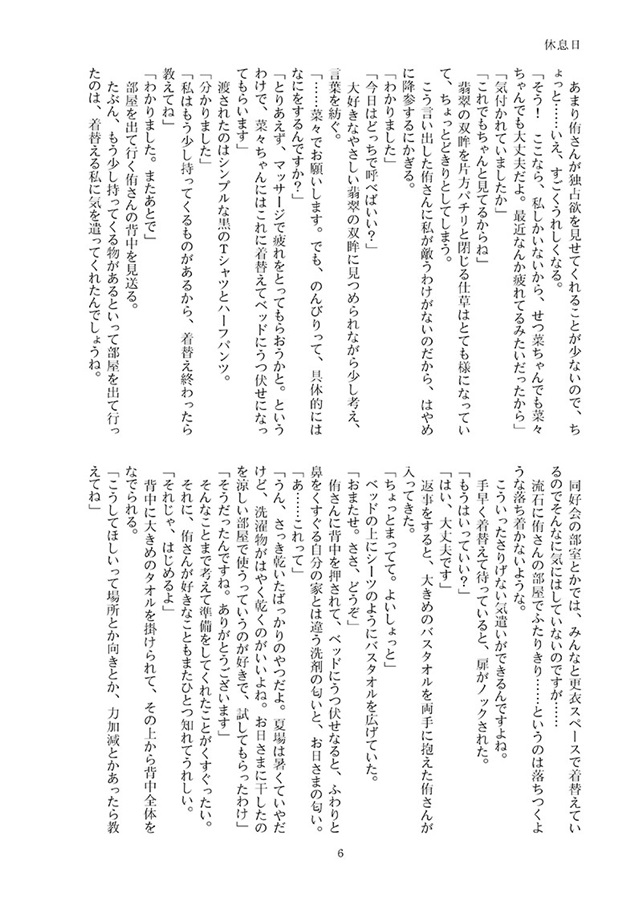 休息日
　あまり侑さんが独占欲を見せてくれることが少ないので、ち
ょっと……いえ、すごくうれしくなる。
「そう！　ここなら、私しかいないから、せつ菜ちゃんでも菜々
ちゃんでも大丈夫だよ。最近なんか疲れてるみたいだったから」
「気付かれていましたか」
「これでもちゃんと見てるからね」
　翡翠の双眸を片方パチリと閉じる仕草はとても様になってい
て、ちょっとどきりとしてしまう。
　こう言い出した侑さんに私が敵うわけがないのだから、はやめ
に降参するにかぎる。
「わかりました」
「今日はどっちで呼べばいい？」
　大好きなやさしい翡翠の双眸に見つめられながら少し考え、
言葉を紡ぐ。
「……菜々でお願いします。でも、のんびりって、具体的には
なにをするんですか？」
「とりあえず、マッサージで疲れをとってもらおうかと。という
わけで、菜々ちゃんにはこれに着替えてベッドにうつ伏せになっ
てもらいます」
　渡されたのはシンプルな黒のTシャツとハーフパンツ。
「分かりました」
「私はもう少し持ってくるものがあるから、着替え終わったら
教えてね」
「わかりました。またあとで」
　部屋を出て行く侑さんの背中を見送る。
　たぶん、もう少し持ってくる物があるといって部屋を出て行っ
たのは、着替える私に気を遣ってくれたんでしょうね。
　同好会の部室とかでは、みんなと更衣スペースで着替えてい
るのでそんなに気にはしていないのですが……
　流石に侑さんの部屋でふたりきり……というのは落ちつくよ
うな落ち着かないような。
　こういったさりげない気遣いができるんですよね。
　手早く着替えて待っていると、扉がノックされた。
「もうはいっていい？」
「はい、大丈夫です」
　返事をすると、大きめのバスタオルを両手に抱えた侑さんが
入ってきた。
「ちょっとまってて。よいしょっと」
　ベッドの上にシーツのようにバスタオルを広げていた。
「おまたせ。ささ、どうぞ」
　侑さんに背中を押されて、ベッドにうつ伏せなると、ふわりと
鼻をくすぐる自分の家とは違う洗剤の匂いと、お日さまの匂い。
「あ……これって」
「うん、さっき乾いたばっかりのやつだよ。夏場は暑くていやだ
けど、洗濯物がはやく乾くのがいいよね。お日さまに干したの
を涼しい部屋で使うっていうのが好きで、試してもらったわけ」
「そうだったんですね。ありがとうございます」
　そんなことまで考えて準備をしてくれたことがくすぐったい。
　それに、侑さんが好きなこともまたひとつ知れてうれしい。
「それじゃ、はじめるよ」
　背中に大きめのタオルを掛けられて、その上から背中全体を
なでられる。
「こうしてほしいって場所とか向きとか、力加減とかあったら教
えてね」
6